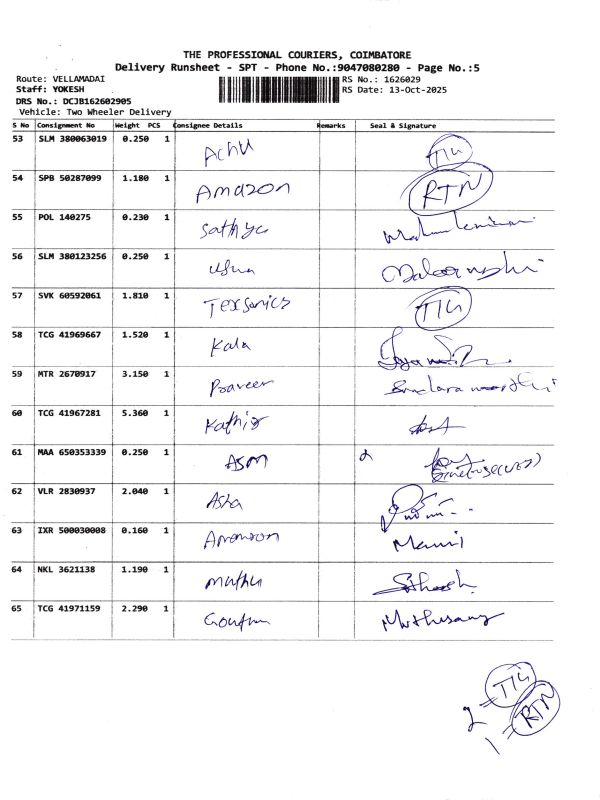 THE PROFESSIONAL COURIERS, COIMBATORE
Delivery Runsheet - SPT - Phone No.:9047080280 - Page No.:5
Route: VELLAMADAI RS No.: 1626029
Staff: YOKESH RS Date: 13-Oct-2025
DRS No.: DCJB162602905
Vehicle: Two Wheeler Delivery
S No Consignment No Weight PCS Consignee Details Remarks Seal & Signature
53 SLM 380063019 0.250 1 Achu TIG
54 SPB 50287099 1.180 1 Amazon RTN
55 POL 140275 0.230 1 Sathya
56 SLM 380123256 0.250 1 Usha
57 SVK 60592061 1.810 1 Texsonics TIG
58 TCG 41969667 1.520 1 Kala
59 MTR 2670917 3.150 1 Praveen
60 TCG 41967281 5.360 1 Kathir
61 MAA 650353339 0.250 1 ASM
62 VLR 2830937 2.040 1 Asha
63 IXR 500030008 0.160 1 Amazon Mani
64 NKL 3621138 1.190 1 Muthu Sathosh
65 TCG 41971159 2.290 1 Goutham
2 = TIG
1 = RTN